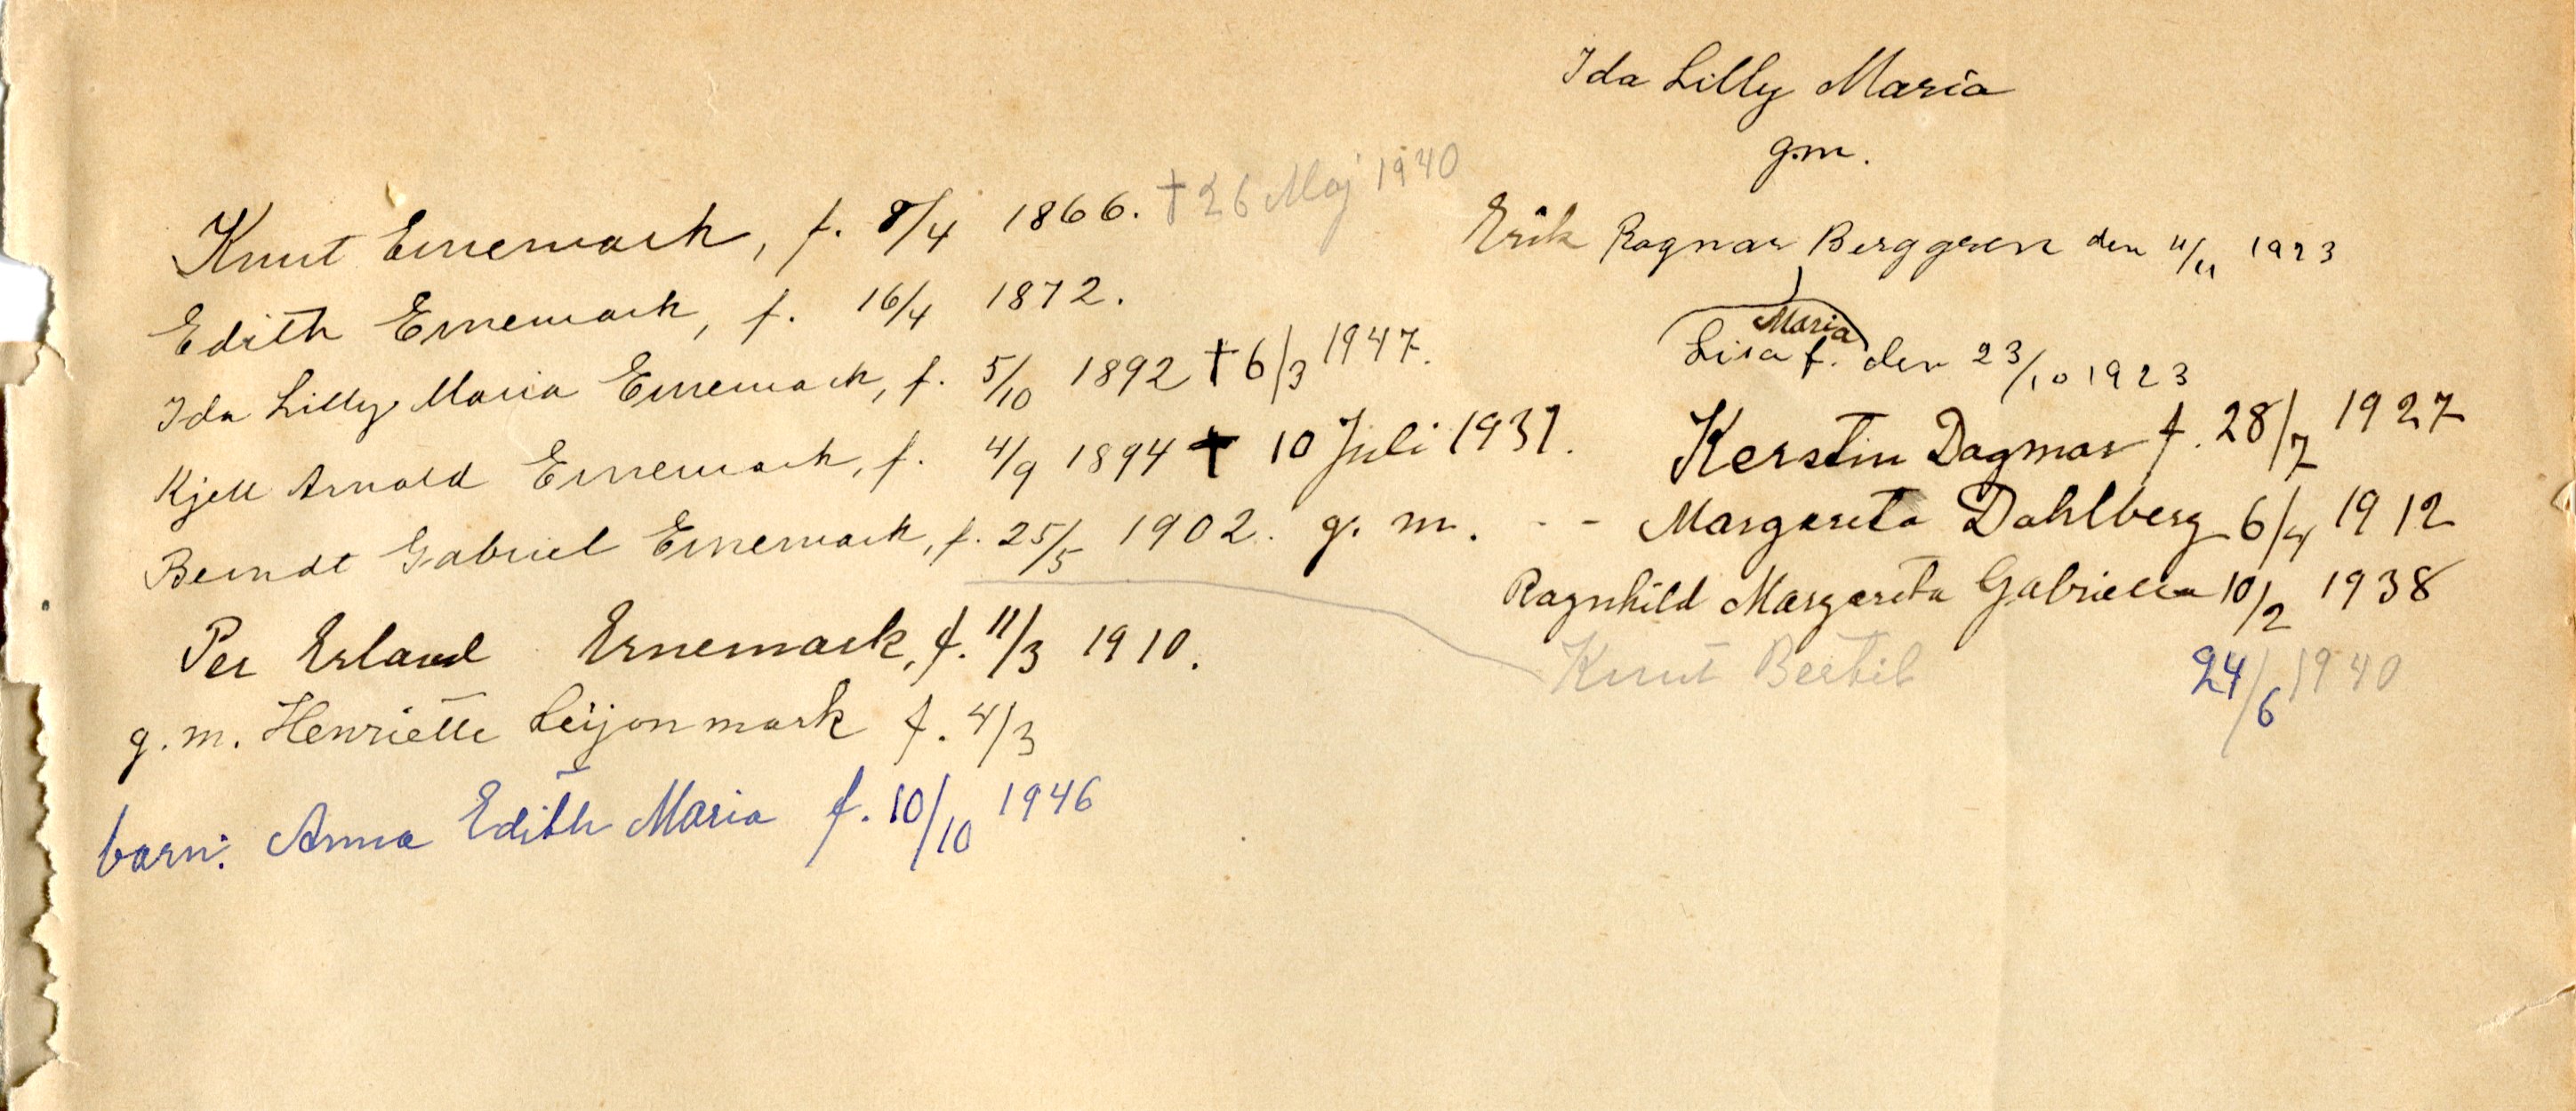 Ida Lilly Maria
g.m.
Erik Ragnar Berggren den 4/11 1923
Maria
Lisa f. den 23/10 1923
Kerstin Dagmar f. 28/7 1927
Knut Ernemark, f. 8/4 1866. † 26 Maj 1940
Edith Ernemark, f. 16/4 1872.
Ida Lilly Maria Ernemark, f. 5/10 1892 † 6/3 1947.
Kjell Arnold Ernemark, f. 4/9 1894 † 10 Juli 1931.
Berndt Gabriel Ernemark, f. 25/5 1902. g. m. - - Margareta Dahlberg 6/4 1912
Ragnhild Margareta Gabriella 10/2 1938
Knut Bertil 24/6 1940
Per Erland Ernemark, f. 11/3 1910.
g. m. Henriette Leijonmark f. 4/3
barn: Anna Edith Maria f. 10/10 1946